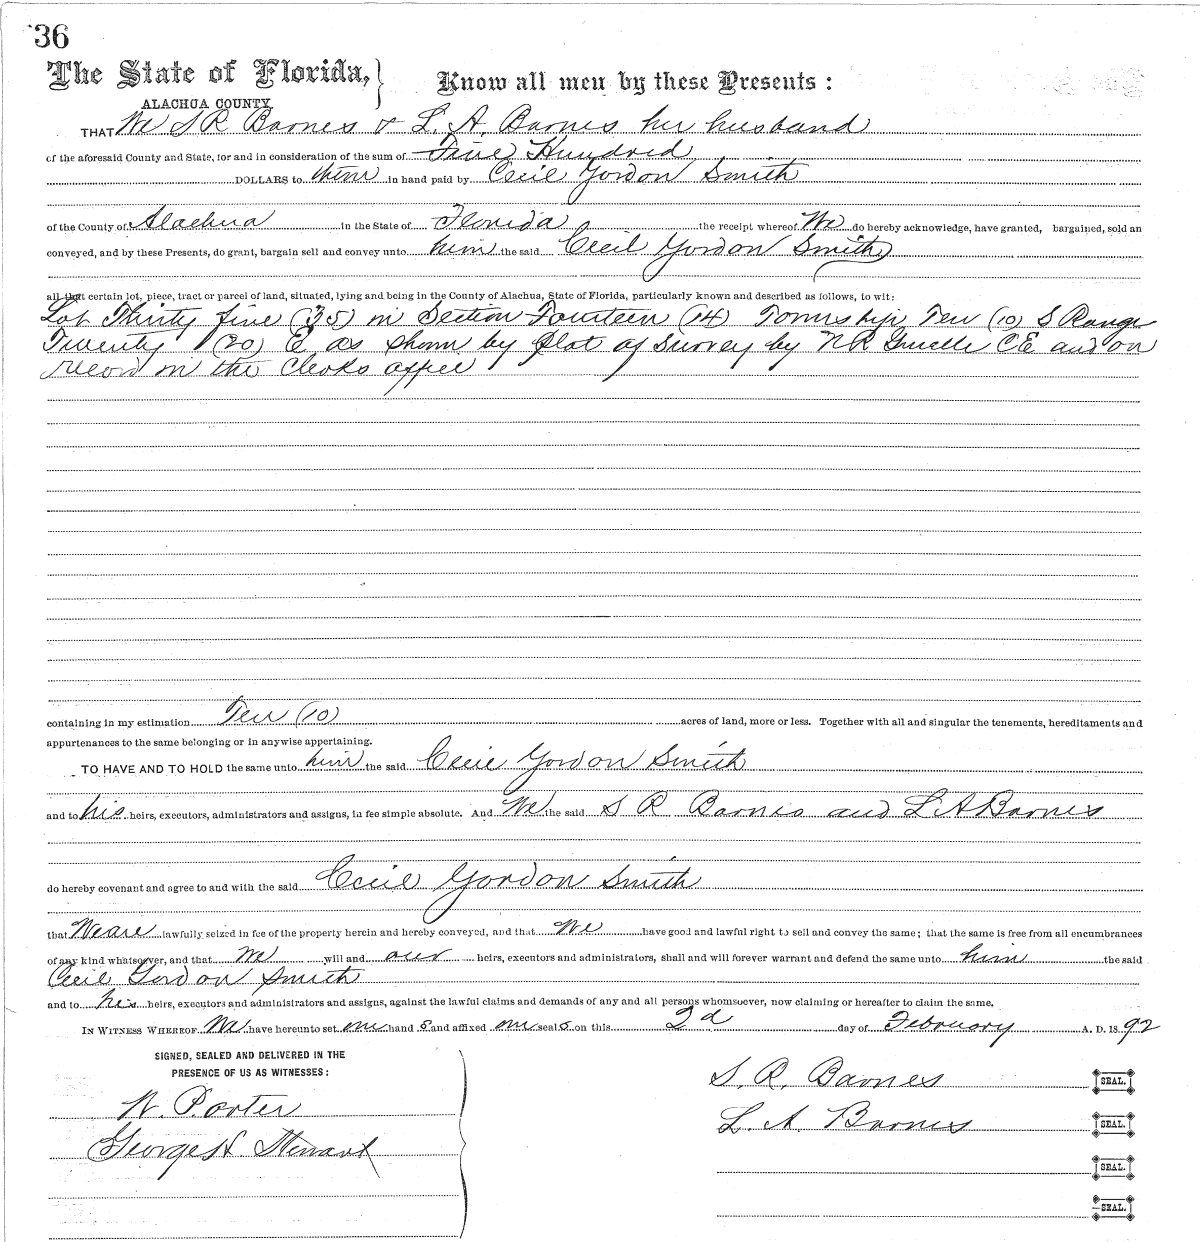 36
The State of Florida, } Know all men by these Presents:
ALACHUA COUNTY
THAT We S R Barnes & L. A. Barnes her husband
of the aforesaid County and State, for and in consideration of the sum of Five Hundred
DOLLARS to them in hand paid by Cecil Gordon Smith
of the County of Alachua in the State of Florida the receipt whereof We do hereby acknowledge, have granted, bargained, sold an
conveyed, and by these Presents, do grant, bargain sell and convey unto him the said Cecil Gordon Smith
all that certain lot, piece, tract or parcel of land, situated, lying and being in the County of Alachua, State of Florida, particularly known and described as follows, to wit:
Lot Thirty five (35) in Section Fourteen (14) Township Ten (10) S Range
Twenty (20) E as shown by plat of survey by N R CE and on
record in the Clerks office
containing in my estimation Ten (10) acres of land, more or less. Together with all and singular the tenements, hereditaments and
appurtenances to the same belonging or in anywise appertaining.
TO HAVE AND TO HOLD the same unto him the said Cecil Gordon Smith
and to his heirs, executors, administrators and assigns, in fee simple absolute. And We the said S R Barnes and L A Barnes
do hereby covenant and agree to and with the said Cecil Gordon Smith
that We are lawfully seized in fee of the property herein and hereby conveyed, and that We have good and lawful right to sell and convey the same; that the same is free from all encumbrances
of any kind whatsoever, and that We will and our heirs, executors and administrators, shall and will forever warrant and defend the same unto him the said
Cecil Gordon Smith
and to his heirs, executors and administrators and assigns, against the lawful claims and demands of any and all persons whomsoever, now claiming or hereafter to claim the same.
IN WITNESS WHEREOF We have hereunto set our hand s and affixed our seal s on this 2d day of February A. D. 1892
SIGNED, SEALED AND DELIVERED IN THE
PRESENCE OF US AS WITNESSES:
S. R. Barnes SEAL.
W. Porter
L. A. Barnes SEAL.
George H. Stewart
SEAL.
SEAL.